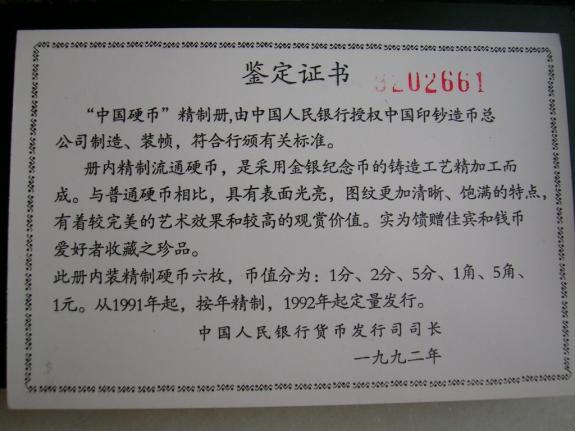 鉴定证书 9202661
“中国硬币”精制册,由中国人民银行授权中国印钞造币总
公司制造、装帧，符合行颁有关标准。
册内精制流通硬币，是采用金银纪念币的铸造工艺精加工而
成。与普通硬币相比，具有表面光亮，图纹更加清晰、饱满的特点，
有着较完美的艺术效果和较高的观赏价值。实为馈赠住宾和钱币
爱好者收藏之珍品。
此册内装精制硬币六枚，币值分为：1分、2分、5分、1角、5角、
1元。从1991年起，按年精制，1992年起定量发行。
中国人民银行货币发行司司长
一九九二年